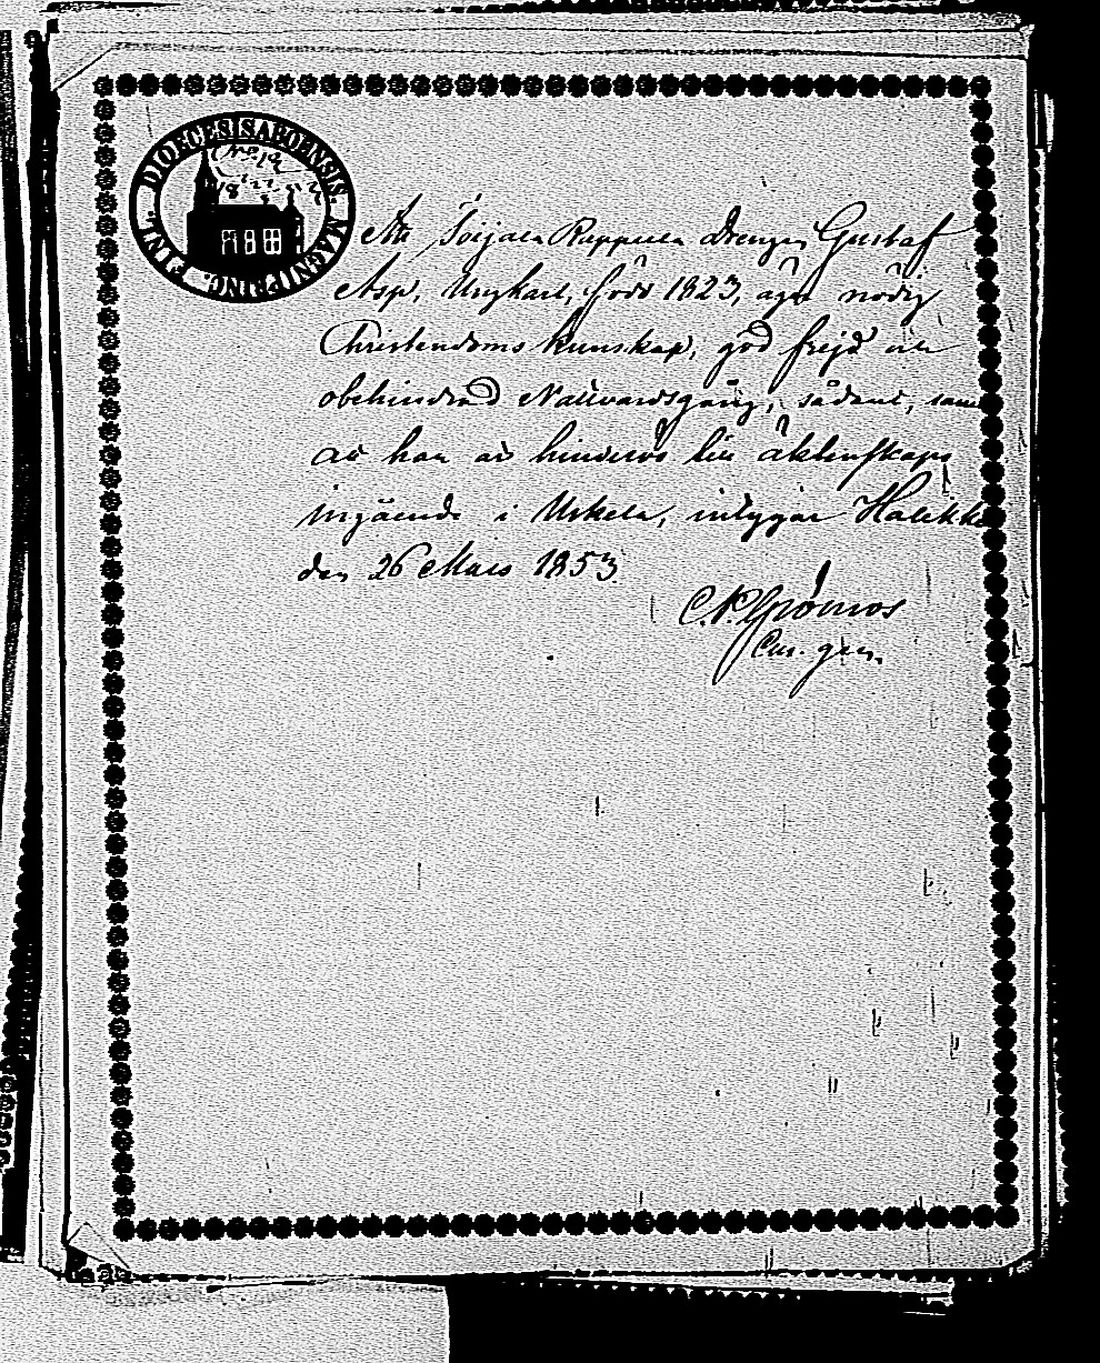 DIOECESIS ABOENSIS. MAGNI PRINC. FINL.
No. 19
Att Torjala Rappula Drengen Gustaf
Asp, Ungkarl, född 1823, äger nödig
Christendoms kunskap, god frejd och
obehindrad Nattvardsgång, sådant, samt
att han är hinderslös till äktenskaps
ingående i Uskela, intygar Halikko
den 26 Mars 1853